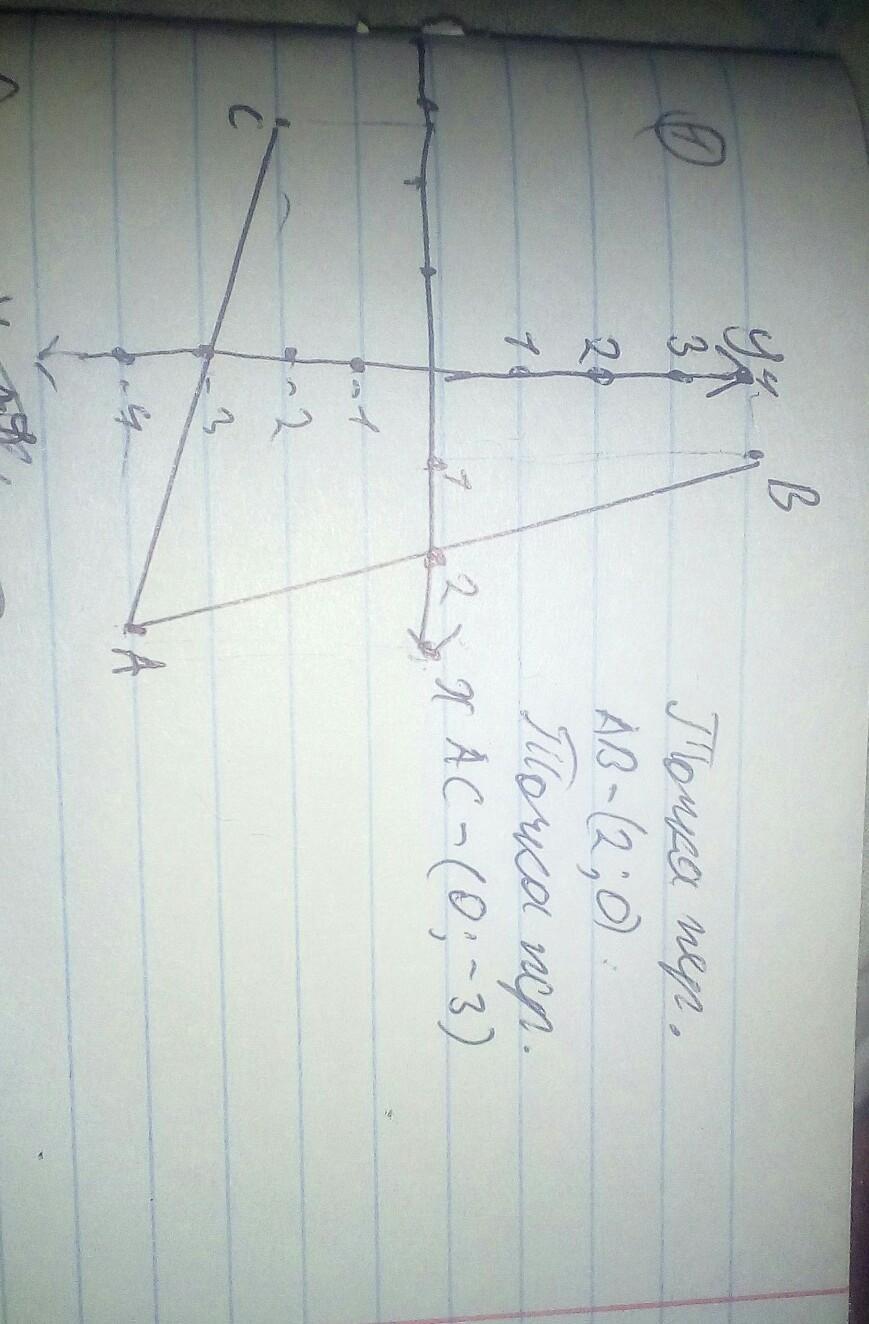 ①
y
4
3
2
1
B
1
2
x
-1
-2
-3
-4
C
A
Точка пер.
AB-(2;0)
Точка пер.
AC-(0;-3)